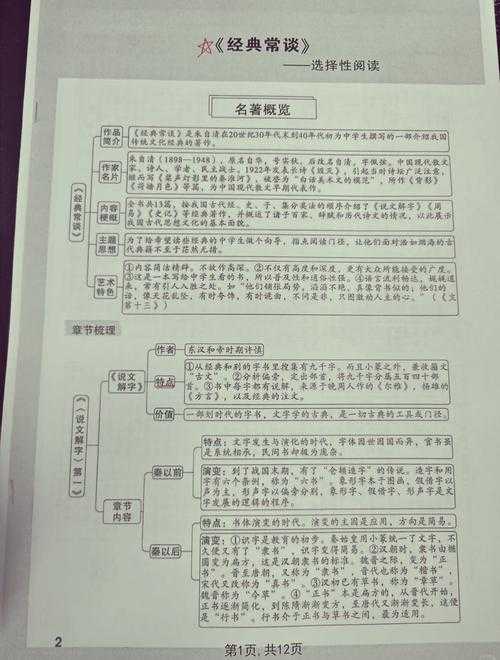 《经典常谈》
——选择性阅读
名著概览
《经典常谈》
作品简介
《经典常谈》是朱自清在20世纪30年代末到40年代初为中学生撰写的一部介绍我国
传统文化经典的著作。
作家名片
朱自清（1898—1948），原名自华，号实秋，后改名自清，字佩弦。中国现代散文
家、诗人、学者、民主战士。1922年发表长诗《毁灭》，引起当时诗坛广泛注意，
继而写《桨声灯影里的秦淮河》，被誉为“白话美术文的模范”，所作《背影》
《荷塘月色》等篇，为中国现代散文早期代表作。
内容梗概
全书共13篇，按我国古代经、史、子、集分类的顺序介绍了《说文解字》《周
易》《史记》等经典著作，并概述了诸子百家、辞赋和历代诗文的情况，以此展示
我国古代思想文化的基本面貌。
主题思想
为了给希望读些经典的中学生做个向导，指点阅读门径，让他们面对浩如烟海的古
代典籍不至于茫然无措。
艺术特色
①内容简洁精辟，不故作高深。②不仅有高度和深度，更有大众所能接受的广度。
③这是一本写给中学生看的书，所以普及性和通俗小强。④语言流利畅达，娓娓道
来，常有引人入胜之处。如“他们铺张局势，滔滔不绝，真像背书似的；他们的
话，像天花乱坠，有时夸饰，有时诡曲，不问是非，只图激动人主的心。”（《文
第十三》）
章节梳理
《〈说文解字〉第一》
《说文解字》
作者
东汉和帝时期许慎
特点
①从经典和别的字书里搜集有九千字。而且小篆之外，兼收籀文
“古文”。②分析偏旁，定出部首，将九千字分属五百四十部
首。③书中每字都有说解，来源于晚周人作的《尔雅》，杨雄的
《方言》，以及经典的注文。
价值
一部划时代的字书，文字学的古典，是一切古典的工具或门径。
章节内容
秦以前
特点：文字发生与演化的时代，字体因世因国而异，官书虽
是系统相承，民间书却极为庞杂。
演变：到了战国末期，有了“仓颉造字”的传说。造字和用
字有六个条例，称为“六书”。象形字本于图画，假借字以
声为主，形声字以偏旁分别，象形字、假借字、形声字是文
字发展的逻辑的程序。
秦以后
特点：书体演变的时代。演变的主因是应用，方向是简易。
演变：①识字是教育的初步。秦始皇用小篆统一了文字，不
久便又有了“隶书”，识字变得简易。②汉朝时，隶书由椭
圆变为扁方，这是汉朝隶书的标准。魏晋之际，变为“正
书”。晋至唐朝，又称为“隶书”，晋代也称为“楷书”，
宋代又改称为“真书”。③汉初已有草书，称为“章草”。
魏晋简称为“今草”。④“正书”本是扁方的，从晋代开始，
正书逐渐简化，到陈隋渐渐变方，至唐代又渐渐变长，这便
是“行书”。行书介于正书与草书之间，最为适用。
2
第1页, 共12页